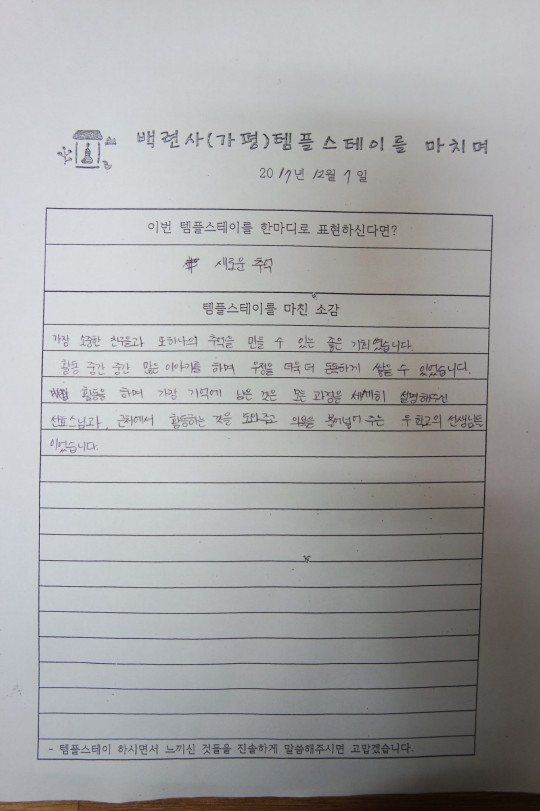 백련사(가평)템플스테이를 마치며
2017년 12월 7일
이번 템플스테이를 한마디로 표현하신다면?
# 새로운 추억
템플스테이를 마친 소감
가장 소중한 친구들과 또하나의 추억을 만들 수 있는 좋은 기회였습니다.
활동 중간 중간 많은 이야기를 하며 우정을 더욱 더 돈독하게 쌓을 수 있었습니다.
활동을 하며 가장 기억에 남은 것은 모든 과정을 세세히 설명해주신
선효스님과, 근처에서 활동하는 것을 도와주고 의욕을 불어넣어 주는 우 학교의 선생님들
이었습니다.
- 템플스테이 하시면서 느끼신 것들을 진솔하게 말씀해주시면 고맙겠습니다.